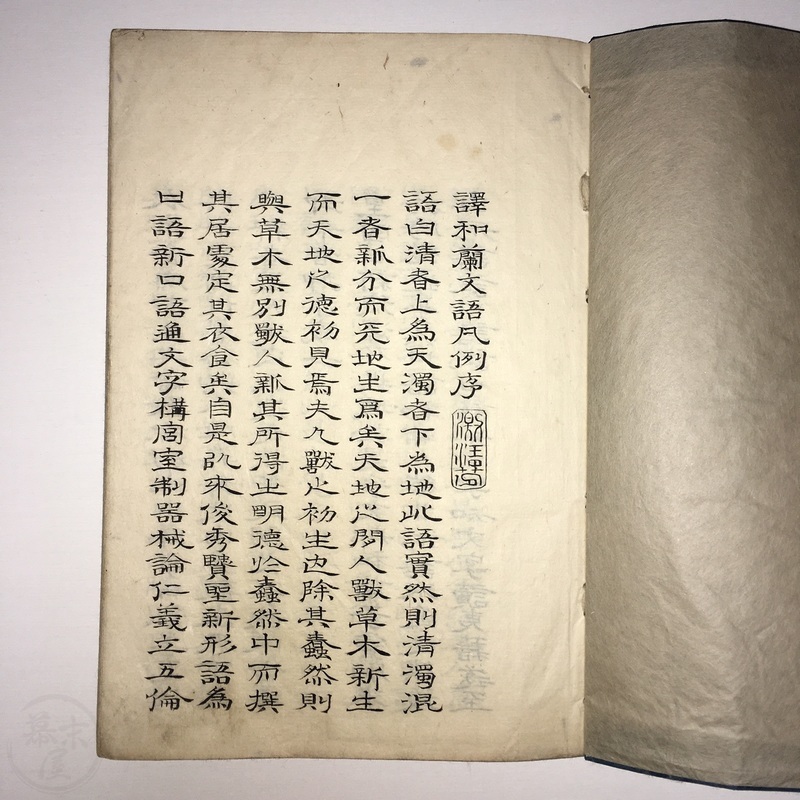 譯和蘭文語凡例序
語曰清者上為天濁者下為地此語實然則清濁混
一者新分而天地生爲矣天地之間人獸草木新生
而天地之德初見焉夫人獸之初生也除其蠢然則
與草木無別獸人新其所得之明德於蠢然中而撰
其居處定其衣食矣自是以來俊秀賢聖新形語為
口語新口語通文字構宮室制器械論仁義立五倫
幕末屋